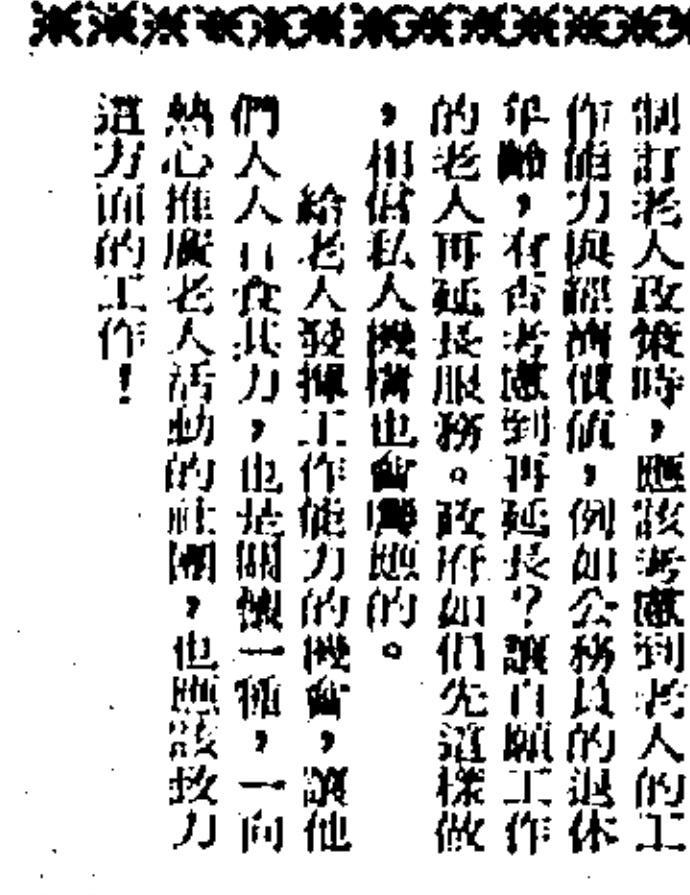 制訂老人政策時，應該考慮到老人的工
作能力與經濟價值，例如公務員的退休
年齡，有否考慮到再延長？讓自願工作
的老人再延長服務。政府如倡先這樣做
，相信私人機構也會響應的。
給老人發揮工作能力的機會，讓他
們人人自食其力，也是關懷一種，一向
熱心推廣老人活動的社團，也應該致力
這方面的工作！